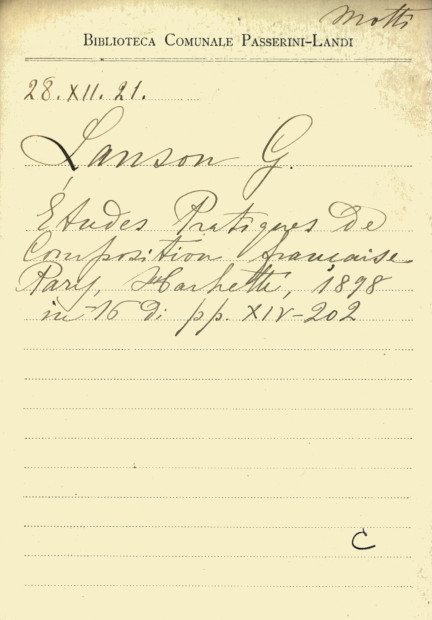 Motti
BIBLIOTECA COMUNALE PASSERINI-LANDI
28.XII.21.
Lanson G.
Études Pratiques De
Composition française
Pary, Hachette, 1898
in 16 Di pp. XIV-202
C